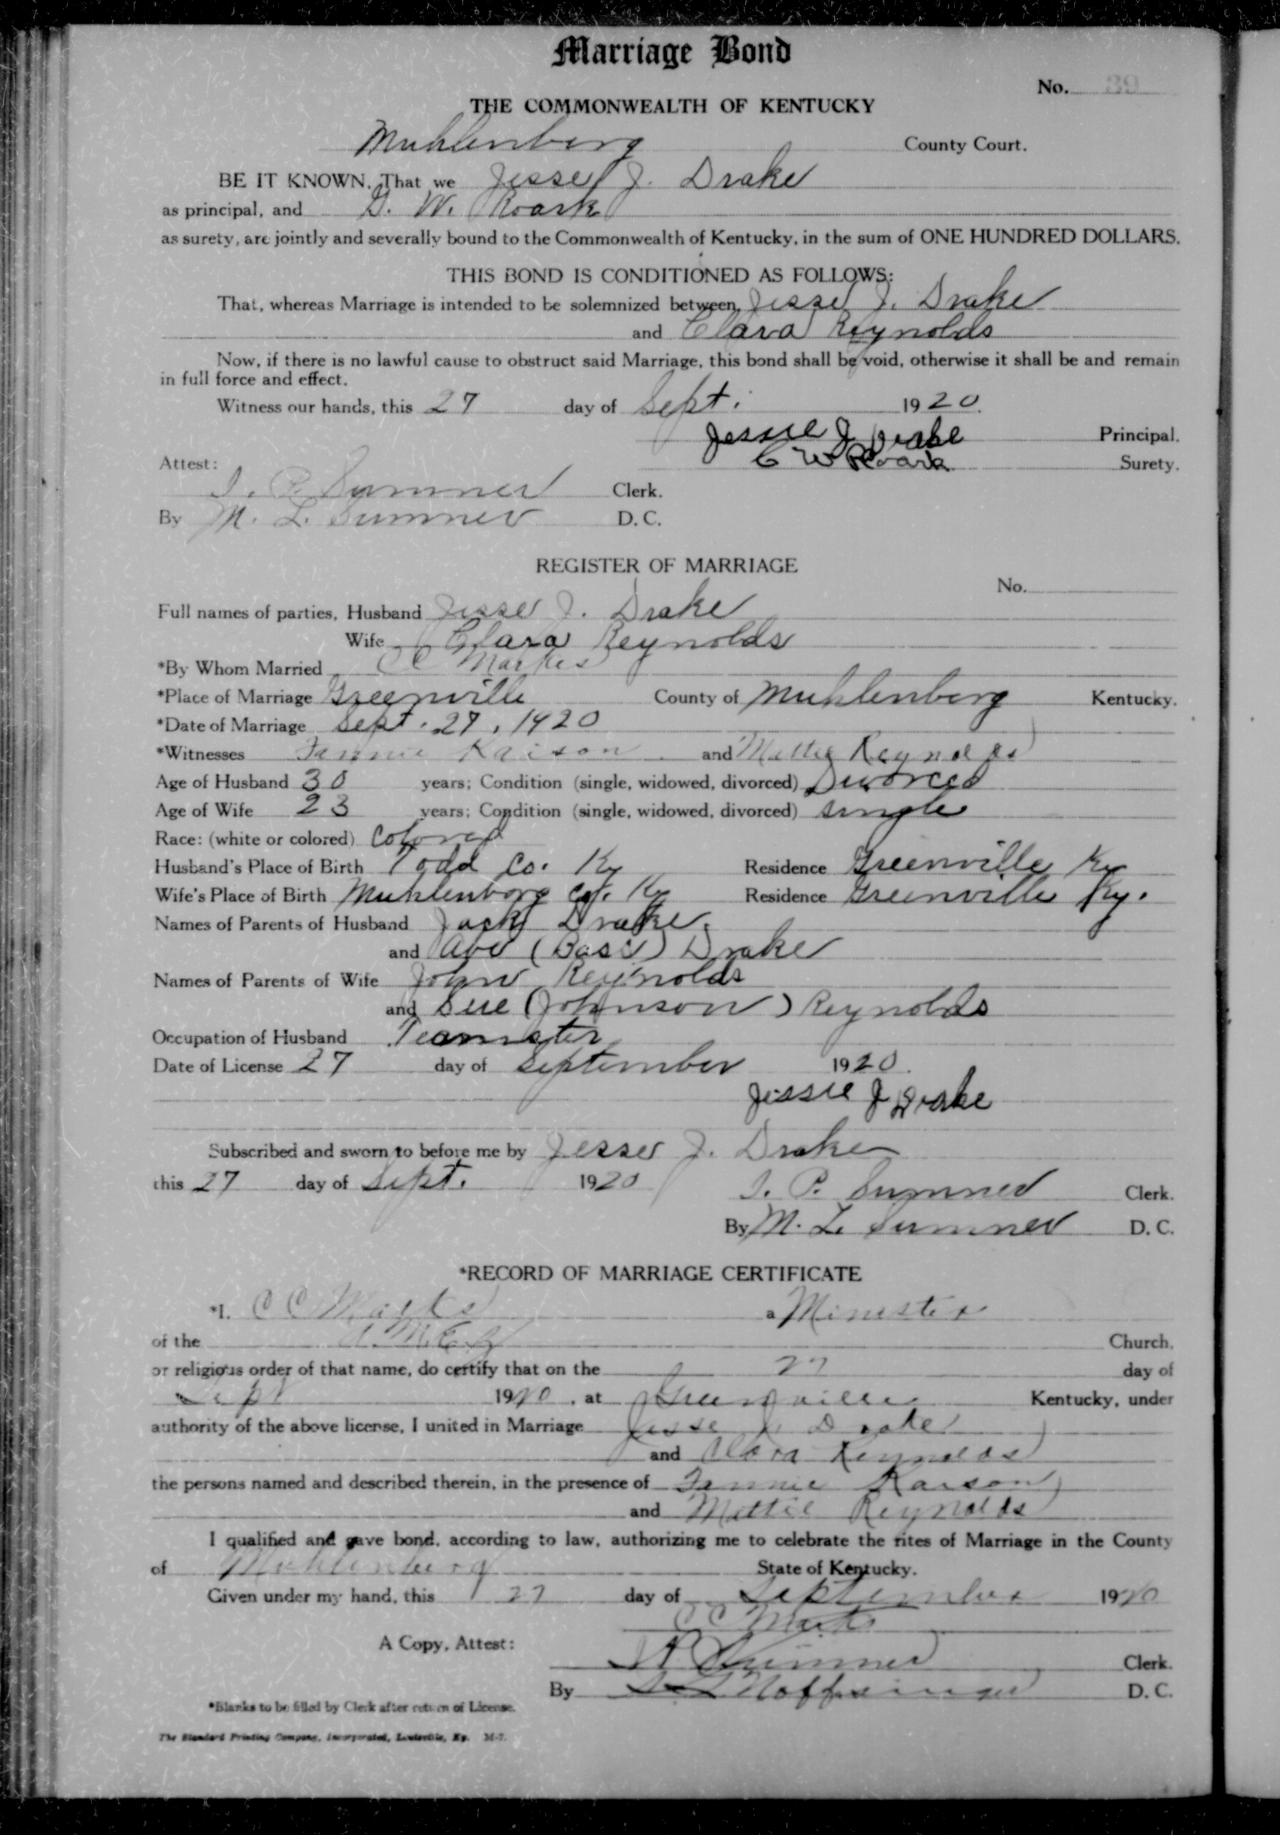 Marriage Bond
No. 39
THE COMMONWEALTH OF KENTUCKY
Muhlenberg County Court.
BE IT KNOWN, That we Jesse J. Drake
as principal, and G. W. Roark
as surety, are jointly and severally bound to the Commonwealth of Kentucky, in the sum of ONE HUNDRED DOLLARS.
THIS BOND IS CONDITIONED AS FOLLOWS:
That, whereas Marriage is intended to be solemnized between Jesse J. Drake
and Clara Reynolds
Now, if there is no lawful cause to obstruct said Marriage, this bond shall be void, otherwise it shall be and remain
in full force and effect.
Witness our hands, this 27 day of Sept. 1920.
Jessie J Drake Principal.
Attest: C W Roark Surety.
J. P. Sumner Clerk.
By M. L. Sumner D. C.
REGISTER OF MARRIAGE
No.
Full names of parties, Husband Jesse J. Drake
Wife Clara Reynolds
*By Whom Married C C Marks
*Place of Marriage Greenville County of Muhlenberg Kentucky.
*Date of Marriage Sept. 27, 1920
*Witnesses Fannie and Mattie Reynolds
Age of Husband 30 years; Condition (single, widowed, divorced) Divorced
Age of Wife 23 years; Condition (single, widowed, divorced) single
Race: (white or colored) colored
Husband's Place of Birth Todd Co. Ky Residence Greenville Ky
Wife's Place of Birth Muhlenberg Co. Ky Residence Greenville Ky.
Names of Parents of Husband Jack Drake
and Drake
Names of Parents of Wife John Reynolds
and Sue (Johnson) Reynolds
Occupation of Husband Teamster
Date of License 27 day of September 1920.
Jessie J Drake
Subscribed and sworn to before me by Jesse J. Drake
this 27 day of Sept. 1920 J. P. Sumner Clerk.
By M. L. Sumner D. C.
*RECORD OF MARRIAGE CERTIFICATE
*I, C C Marks a Minister
of the A.M.E.Z Church,
or religious order of that name, do certify that on the 27 day of
Sept 1920, at Greenville Kentucky, under
authority of the above license, I united in Marriage Jesse J. Drake
and Clara Reynolds
the persons named and described therein, in the presence of Fannie
and Mattie Reynolds
I qualified and gave bond, according to law, authorizing me to celebrate the rites of Marriage in the County
of Muhlenberg State of Kentucky.
Given under my hand, this 27 day of September 1920
C C Marks
A Copy, Attest:
J P Sumner Clerk.
By Noffsinger D. C.
*Blanks to be filled by Clerk after return of License.
The Standard Printing Company, Incorporated, Louisville, Ky. M-7.